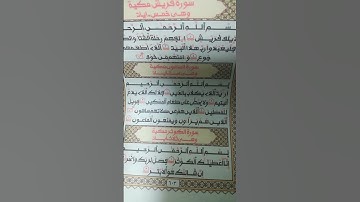 سورة قريش مكية
بسم الله الرحمن الرحيم
لإيلاف قريش إيلافهم رحلة الشتاء
فليعبدوا رب هذا البيت الذي أطعمهم
جوع وآمنهم من خوف
بسم الله الرحمن الرحيم
أرأيت الذي يكذب بالدين فذلك الذي يدع
اليتيم ولا يحض على طعام المسكين فويل
للمصلين الذين هم عن صلاتهم ساهون
الذين هم يراءون ويمنعون الماعون
سورة الكوثر مكية
بسم الله الرحمن الرحيم
إنا أعطيناك الكوثر فصل لربك وانحر
إن شانئك هو الأبتر